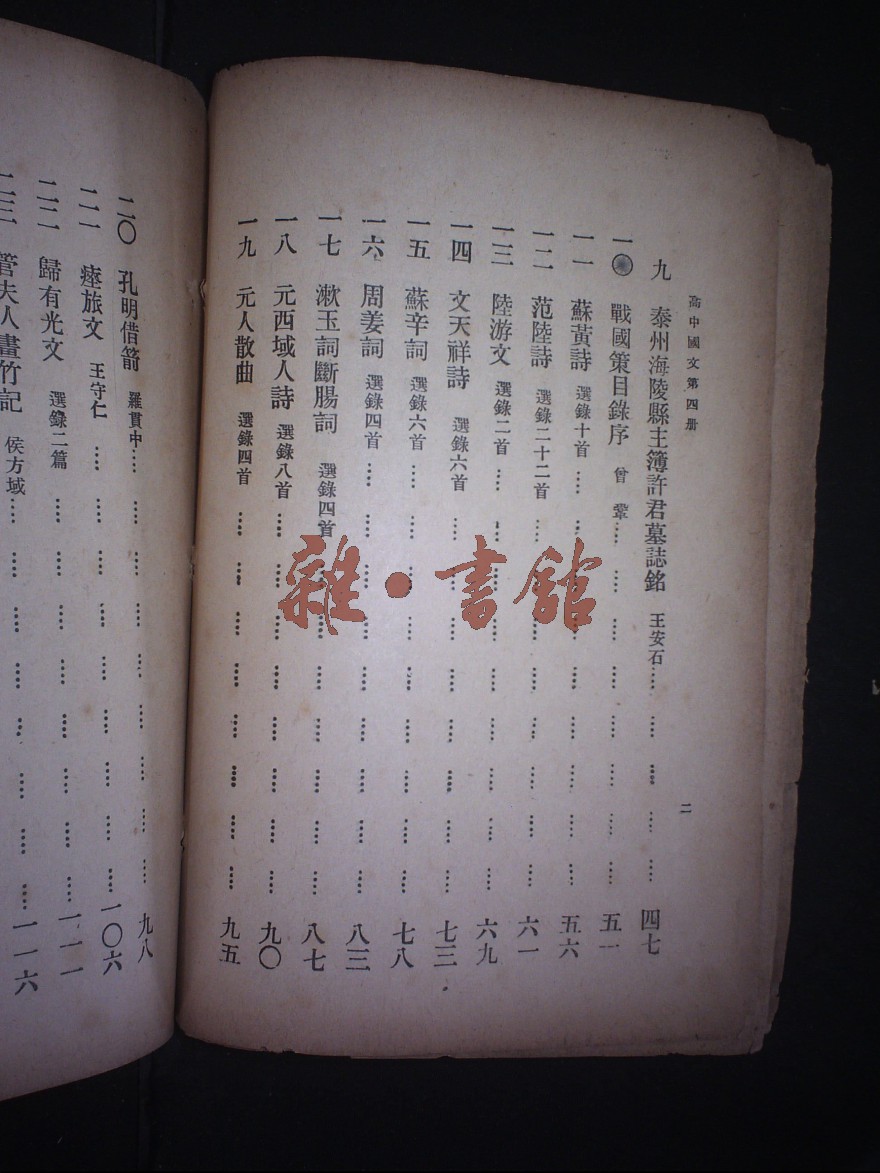 高中國文第四册
二
九　泰州海陵縣主簿許君墓誌銘　王安石………………四七
一〇　戰國策目錄序　曾鞏………………五一
一一　蘇黃詩　選錄十首………………五六
一二　范陸詩　選錄二十二首………………六一
一三　陸游文　選錄二首………………六九
一四　文天祥詩　選錄六首………………七三
一五　蘇辛詞　選錄六首………………七八
一六　周姜詞　選錄四首………………八三
一七　漱玉詞斷腸詞　選錄四首………………八七
一八　元西域人詩　選錄八首………………九〇
一九　元人散曲　選錄四首………………九五
二〇　孔明借箭　羅貫中………………九八
二一　瘞旅文　王守仁………………一〇六
二二　歸有光文　選錄二篇………………一一一
二三　管夫人畫竹記　侯方域………………一一六
雜·書館